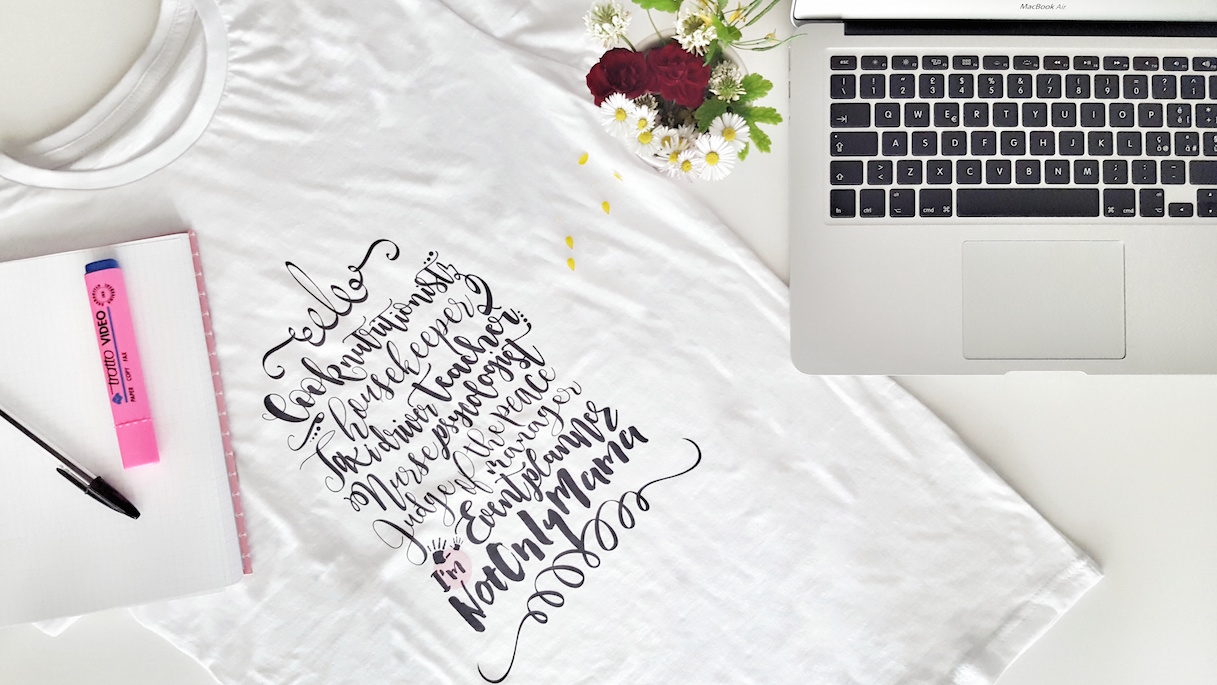 MacBook Air
esc
! 1 " 2 £ 3 $ 4 % 5 & 6 / 7 ( 8 ) 9 = 0 ? '
Q W E € R T Y U I O P
A S D F G H J K L
> < Z X C V B N M
fn ctrl cmd cmd
Cook nutritionist
housekeeper
Taxi driver teacher
Nurse psycologist
Judge of the peace
manager
Event planner
I'm
NotOnlyMama
tratto VIDEO
PAPER COPY FAX